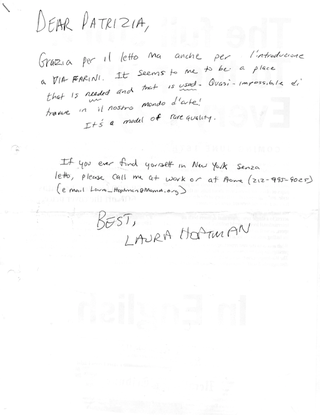 DEAR PATRIZIA,
Grazia per il letto ma anche per l'introduzione
a VIA FARINI. It seems to me to be a place
that is needed and that is used. Quasi-impossibile di
trovare in il nostro mondo d'arte!
It's a model of rare quality.
If you ever find yourself in New York senza
letto, please call me at work or at home (212-
(e mail Laura_Hoptman@Moma.org)
BEST,
LAURA HOPTMAN
In English